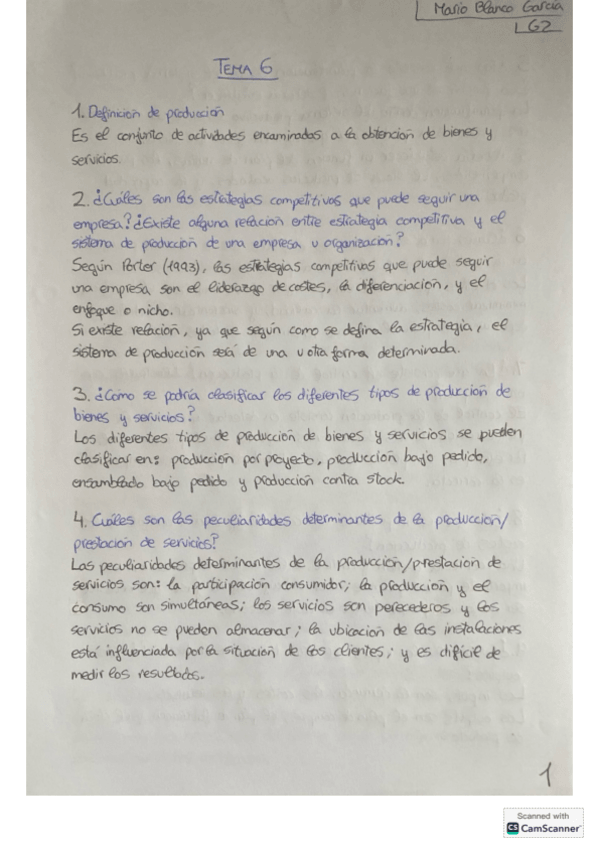 Mario Blanco García
LG2
TEMA 6
1. Definición de producción
Es el conjunto de actividades encaminadas a la obtención de bienes y
servicios.
2. ¿Cuáles son las estrategias competitivas que puede seguir una
empresa? ¿Existe alguna relación entre estrategia competitiva y el
sistema de producción de una empresa u organización?
Según Porter (1993), las estrategias competitivas que puede seguir
una empresa son el liderazgo de costes, la diferenciación, y el
enfoque o nicho.
Si existe relación, ya que según como se defina la estrategia, el
sistema de producción será de una u otra forma determinada.
3. ¿Cómo se podría clasificar los diferentes tipos de producción de
bienes y servicios?
Los diferentes tipos de producción de bienes y servicios se pueden
clasificar en: producción por proyecto, producción bajo pedido,
ensamblado bajo pedido y producción contra stock.
4. Cuáles son las peculiaridades determinantes de la producción/
prestación de servicios?
Las peculiaridades determinantes de la producción/prestación de
servicios son: la participación consumidor; la producción y el
consumo son simultáneas; los servicios son perecederos y los
servicios no se pueden almacenar; la ubicación de las instalaciones
está influenciada por la situación de los clientes; y es difícil de
medir los resultados.
1
Scanned with
CS CamScanner